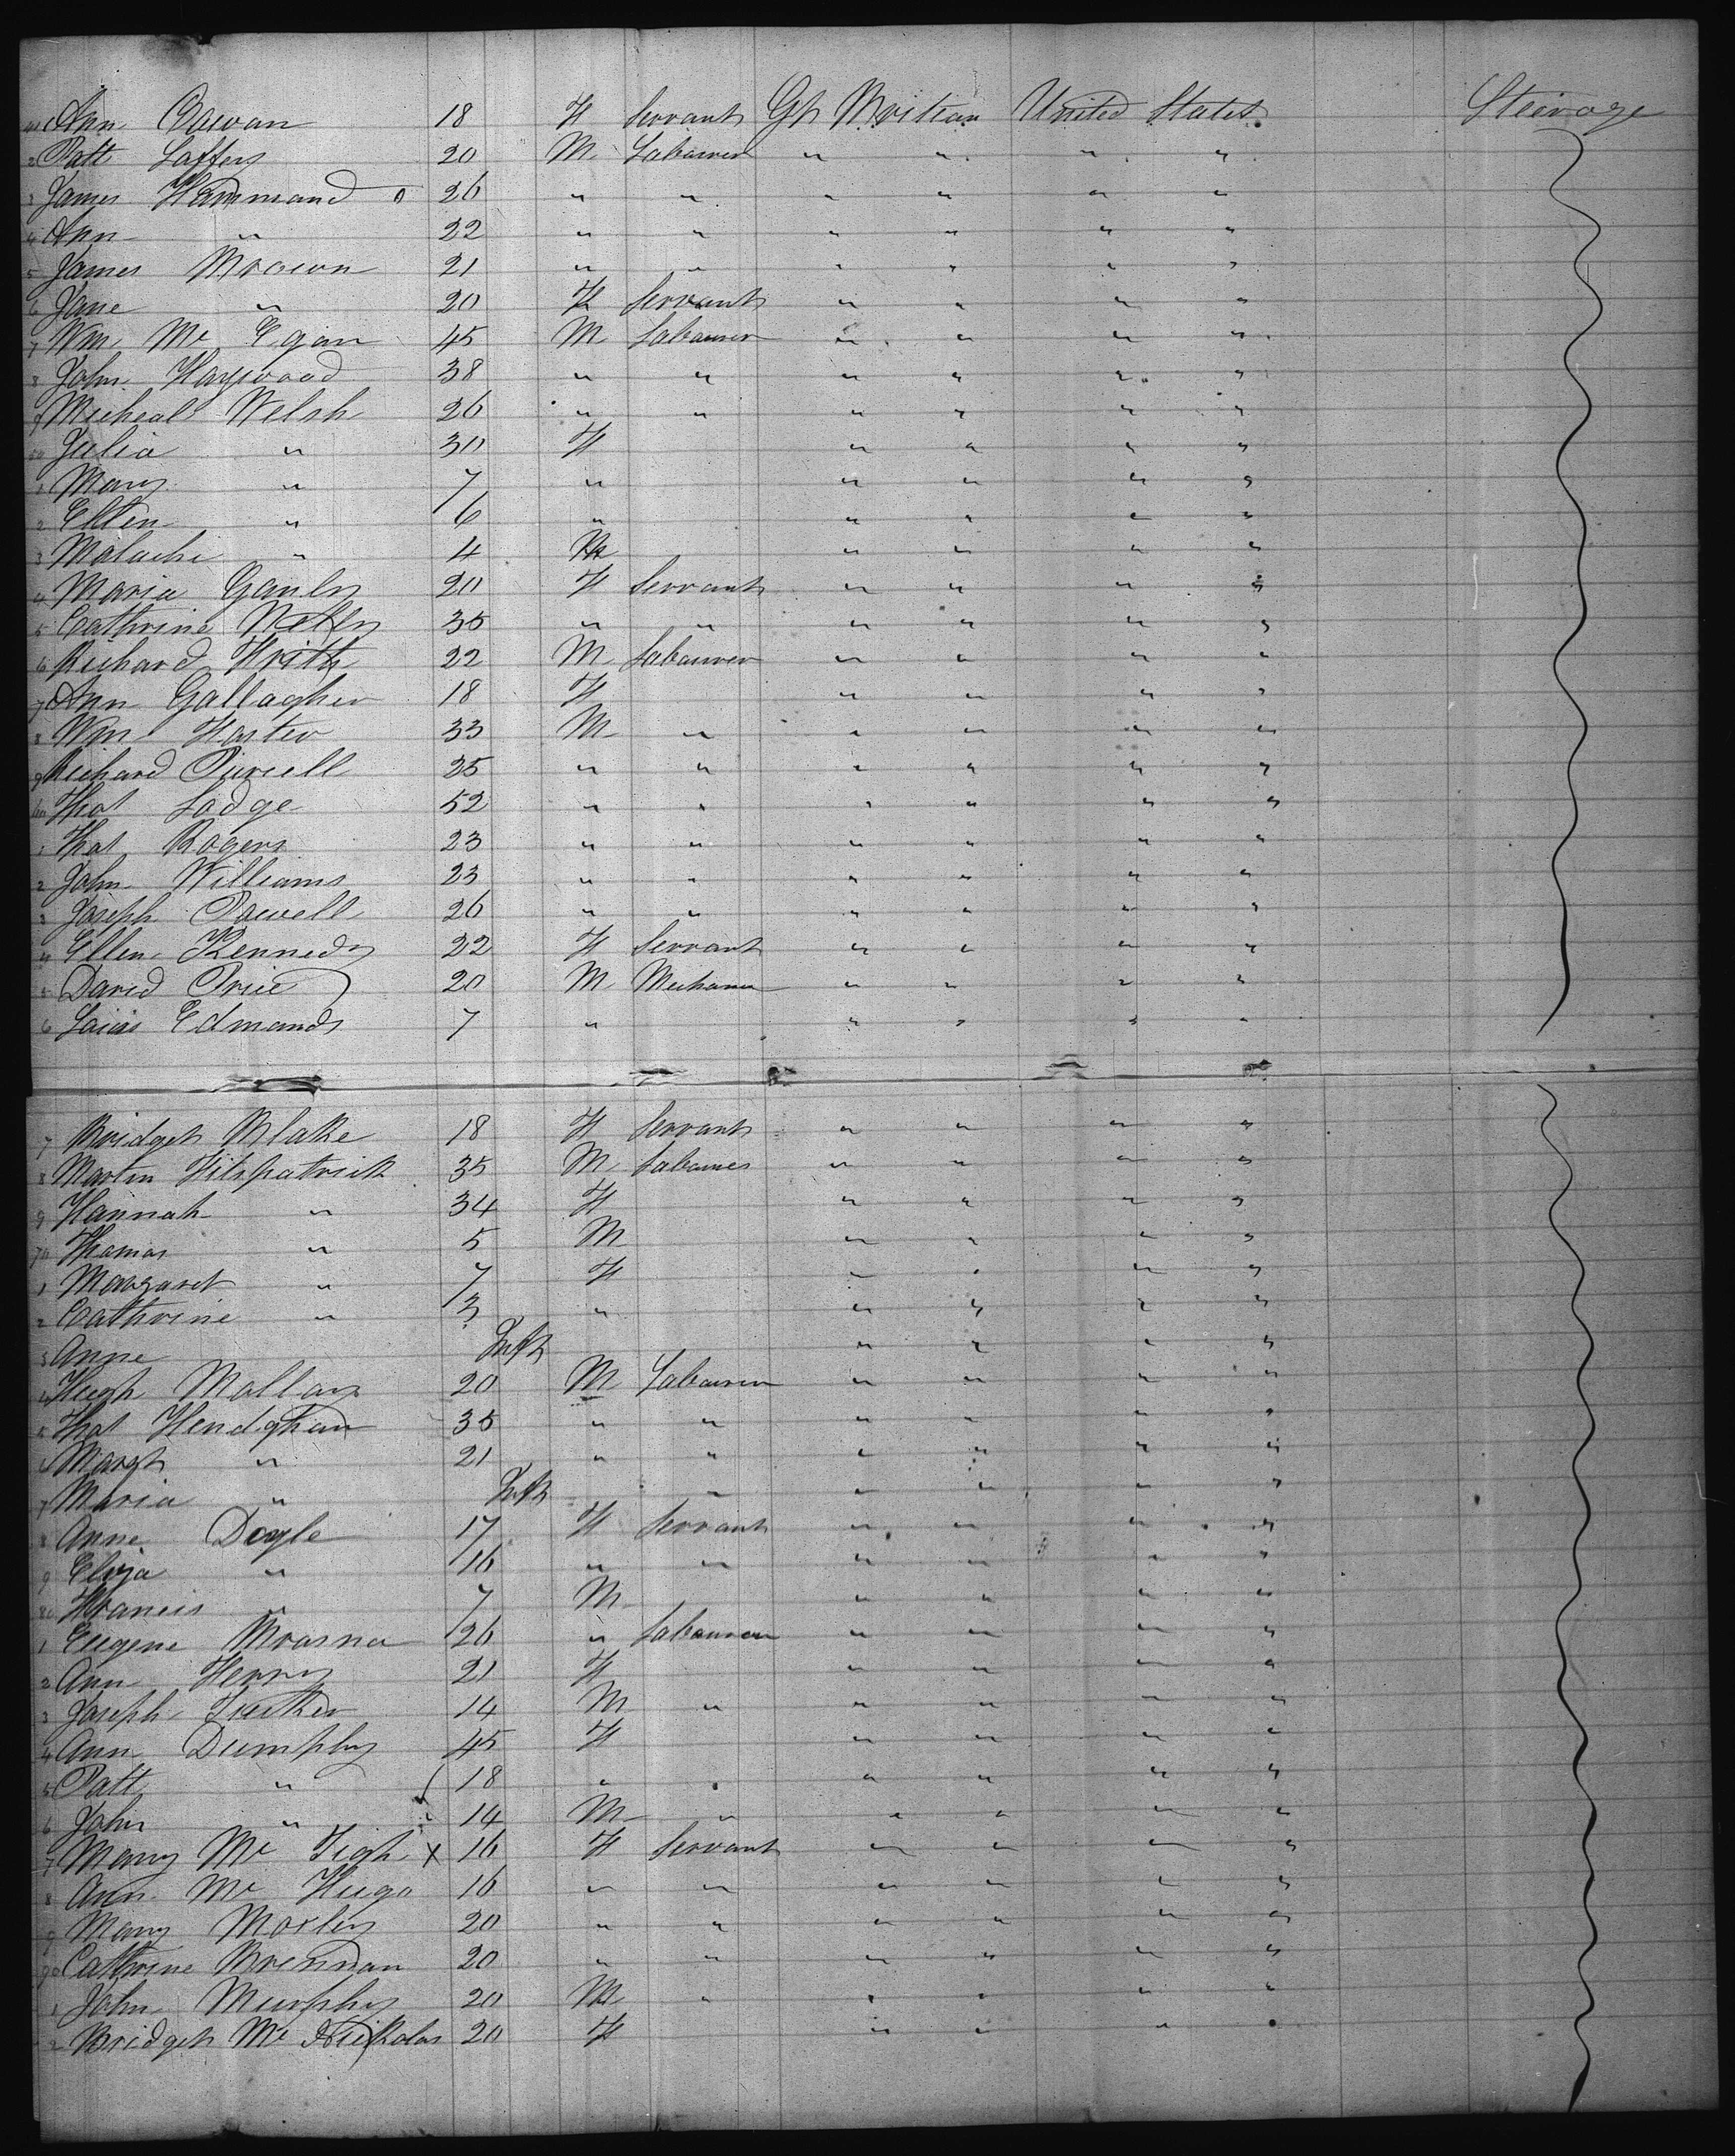 Ann Cowan 18 F Servant Gt Brittan United States Steerage
2 Patt Laffery 20 M Labourer " " " "
3 James Hammond 26 " " " " " "
4 Ann " 22 " " " " " "
5 James Brown 21 " " " " " "
6 Jane " 20 F Servant " " " "
7 Wm Mc Egan 45 M Labourer " " " "
8 John Haywood 38 " " " " " "
9 Micheal Welsh 26 " " " " " "
50 Julia " 30 F " " " "
1 Mary " 7 " " " " "
2 Ellen " 6 " " " " "
3 Malachi " 4 M " " " "
4 Maria Ganly 20 F Servant " " " "
5 Cathrine 35 " " " " " "
6 Richard Frith 22 M Labourer " " " "
7 Ann Gallagher 18 F " " " "
8 Wm Foster 33 M " " " " "
9 Richard Purcell 25 " " " " " "
60 Thos Lodge 52 " " " " " "
1 Thos Rogers 23 " " " " " "
2 John Williams 23 " " " " " "
3 Joseph Powell 26 " " " " " "
4 Ellen Kennedy 22 F Servant " " " "
5 David Price 20 M Mechanic " " " "
6 Edmonds 7 " " " " "
7 Bridget Blake 18 F Servant " " " "
8 Martin Fitspatrick 35 M Labourer " " " "
9 Hannah " 34 F " " " "
70 Thomas " 5 M " " " "
1 Margaret " 7 F " " " "
2 Cathrine " 3 " " " " "
3 Anne Inft " " " "
4 Hugh Mollay 20 M Labourer " " " "
5 Thos 35 " " " " " "
6 Margt " 21 " " " " " "
7 Maria " Inft " " " " "
8 Anne Doyle 17 F Servant " " " "
9 Eliza " 16 " " " " " "
80 Francis " 7 M " " " "
1 Eugene 26 " Labourer " " " "
2 Ann Henry 21 F " " " "
3 Joseph Tucker 14 M " " " " "
4 Ann Dumphy 45 F " " " "
5 Patt " 18 " " " " " "
6 John " 14 M " " " " "
7 Mary Mc Tigh X 16 F Servant " " " "
8 Ann Mc Hugo 16 " " " " " "
9 Mary Morley 20 " " " " " "
90 Cathrine Brennan 20 " " " " " "
1 John Murphy 20 M " " " " "
2 Bridget Mc Nickolas 20 F " " " "